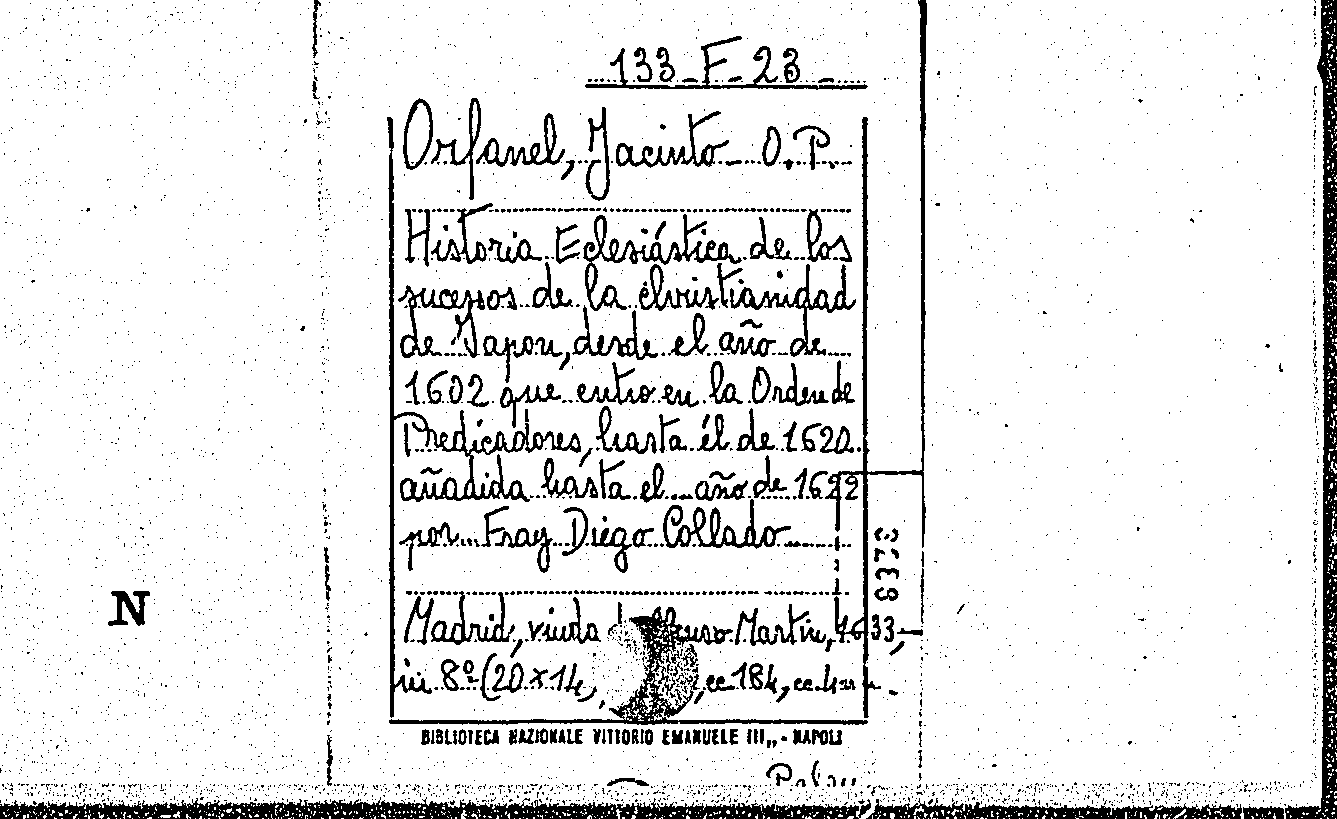 133-F-23-
Orfanel, Jacinto - O.P.
Historia Eclesiástica de los
sucessos de la christianidad
de Japon, desde el año de
1602 que entro en la Orden de
Predicadores, hasta él de 1620
añadida hasta el año de 1622
por Fray Diego Collado
3739
N
Madrid, viuda Martin, 1633,
in 8º (20x14, , cc 184, cc.
BIBLIOTECA NAZIONALE VITTORIO EMANUELE III,, - NAPOLI
Palau